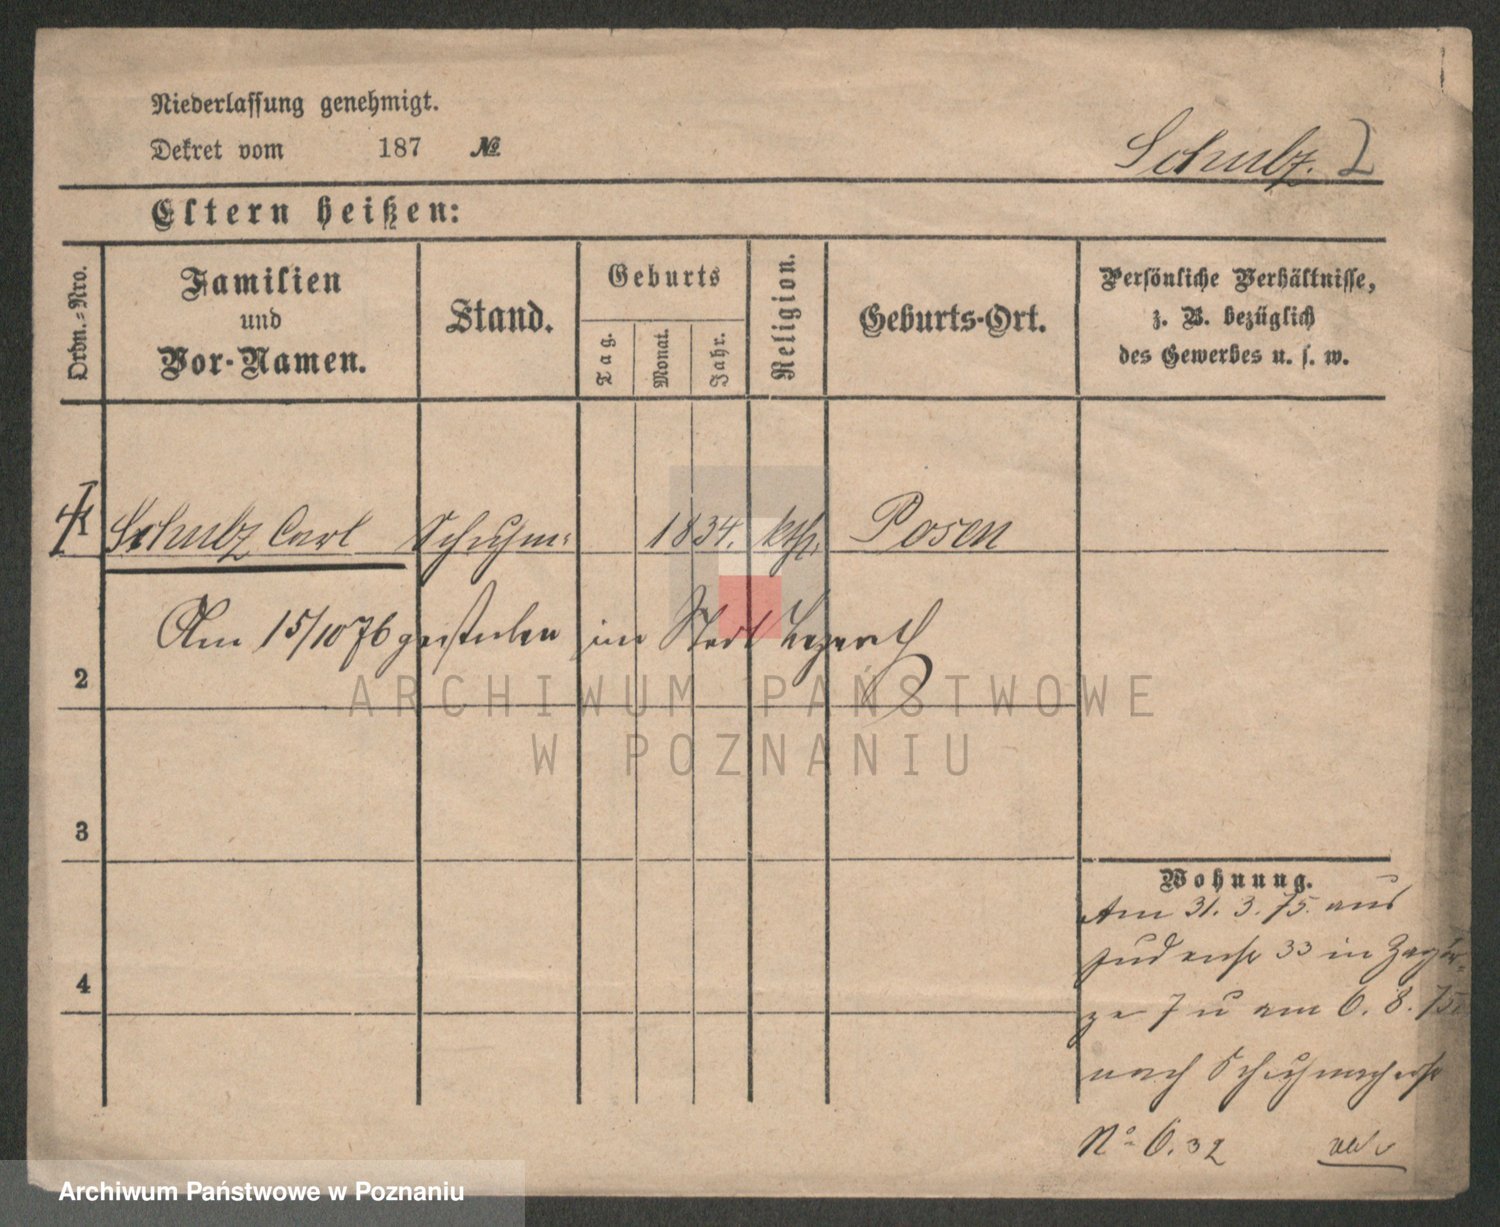 Niederlassung genehmigt.
Dekret vom 187 №
Schulz. 2
Eltern heißen:
Ordn.-Nro.
Familien
und
Vor-Namen.
Stand.
Geburts
Tag.
Monat.
Jahr.
Religion.
Geburts-Ort.
Persönliche Verhältnisse,
z. B. bezüglich
des Gewerbes u. s. w.
1 Schulz Carl Schuhm: 1834. kth. Posen
Am 15/10 76 gestorben im Stadt Lazareth
2
3
4
Wohnung.
Am 31. 3. 75. aus
Judenstr 33 in Zagór-
ze 7 u am 6. 8. 75.
nach Schuhmacherstr
No 6. 32
ARCHIWUM PAŃSTWOWE
W POZNANIU
Archiwum Państwowe w Poznaniu